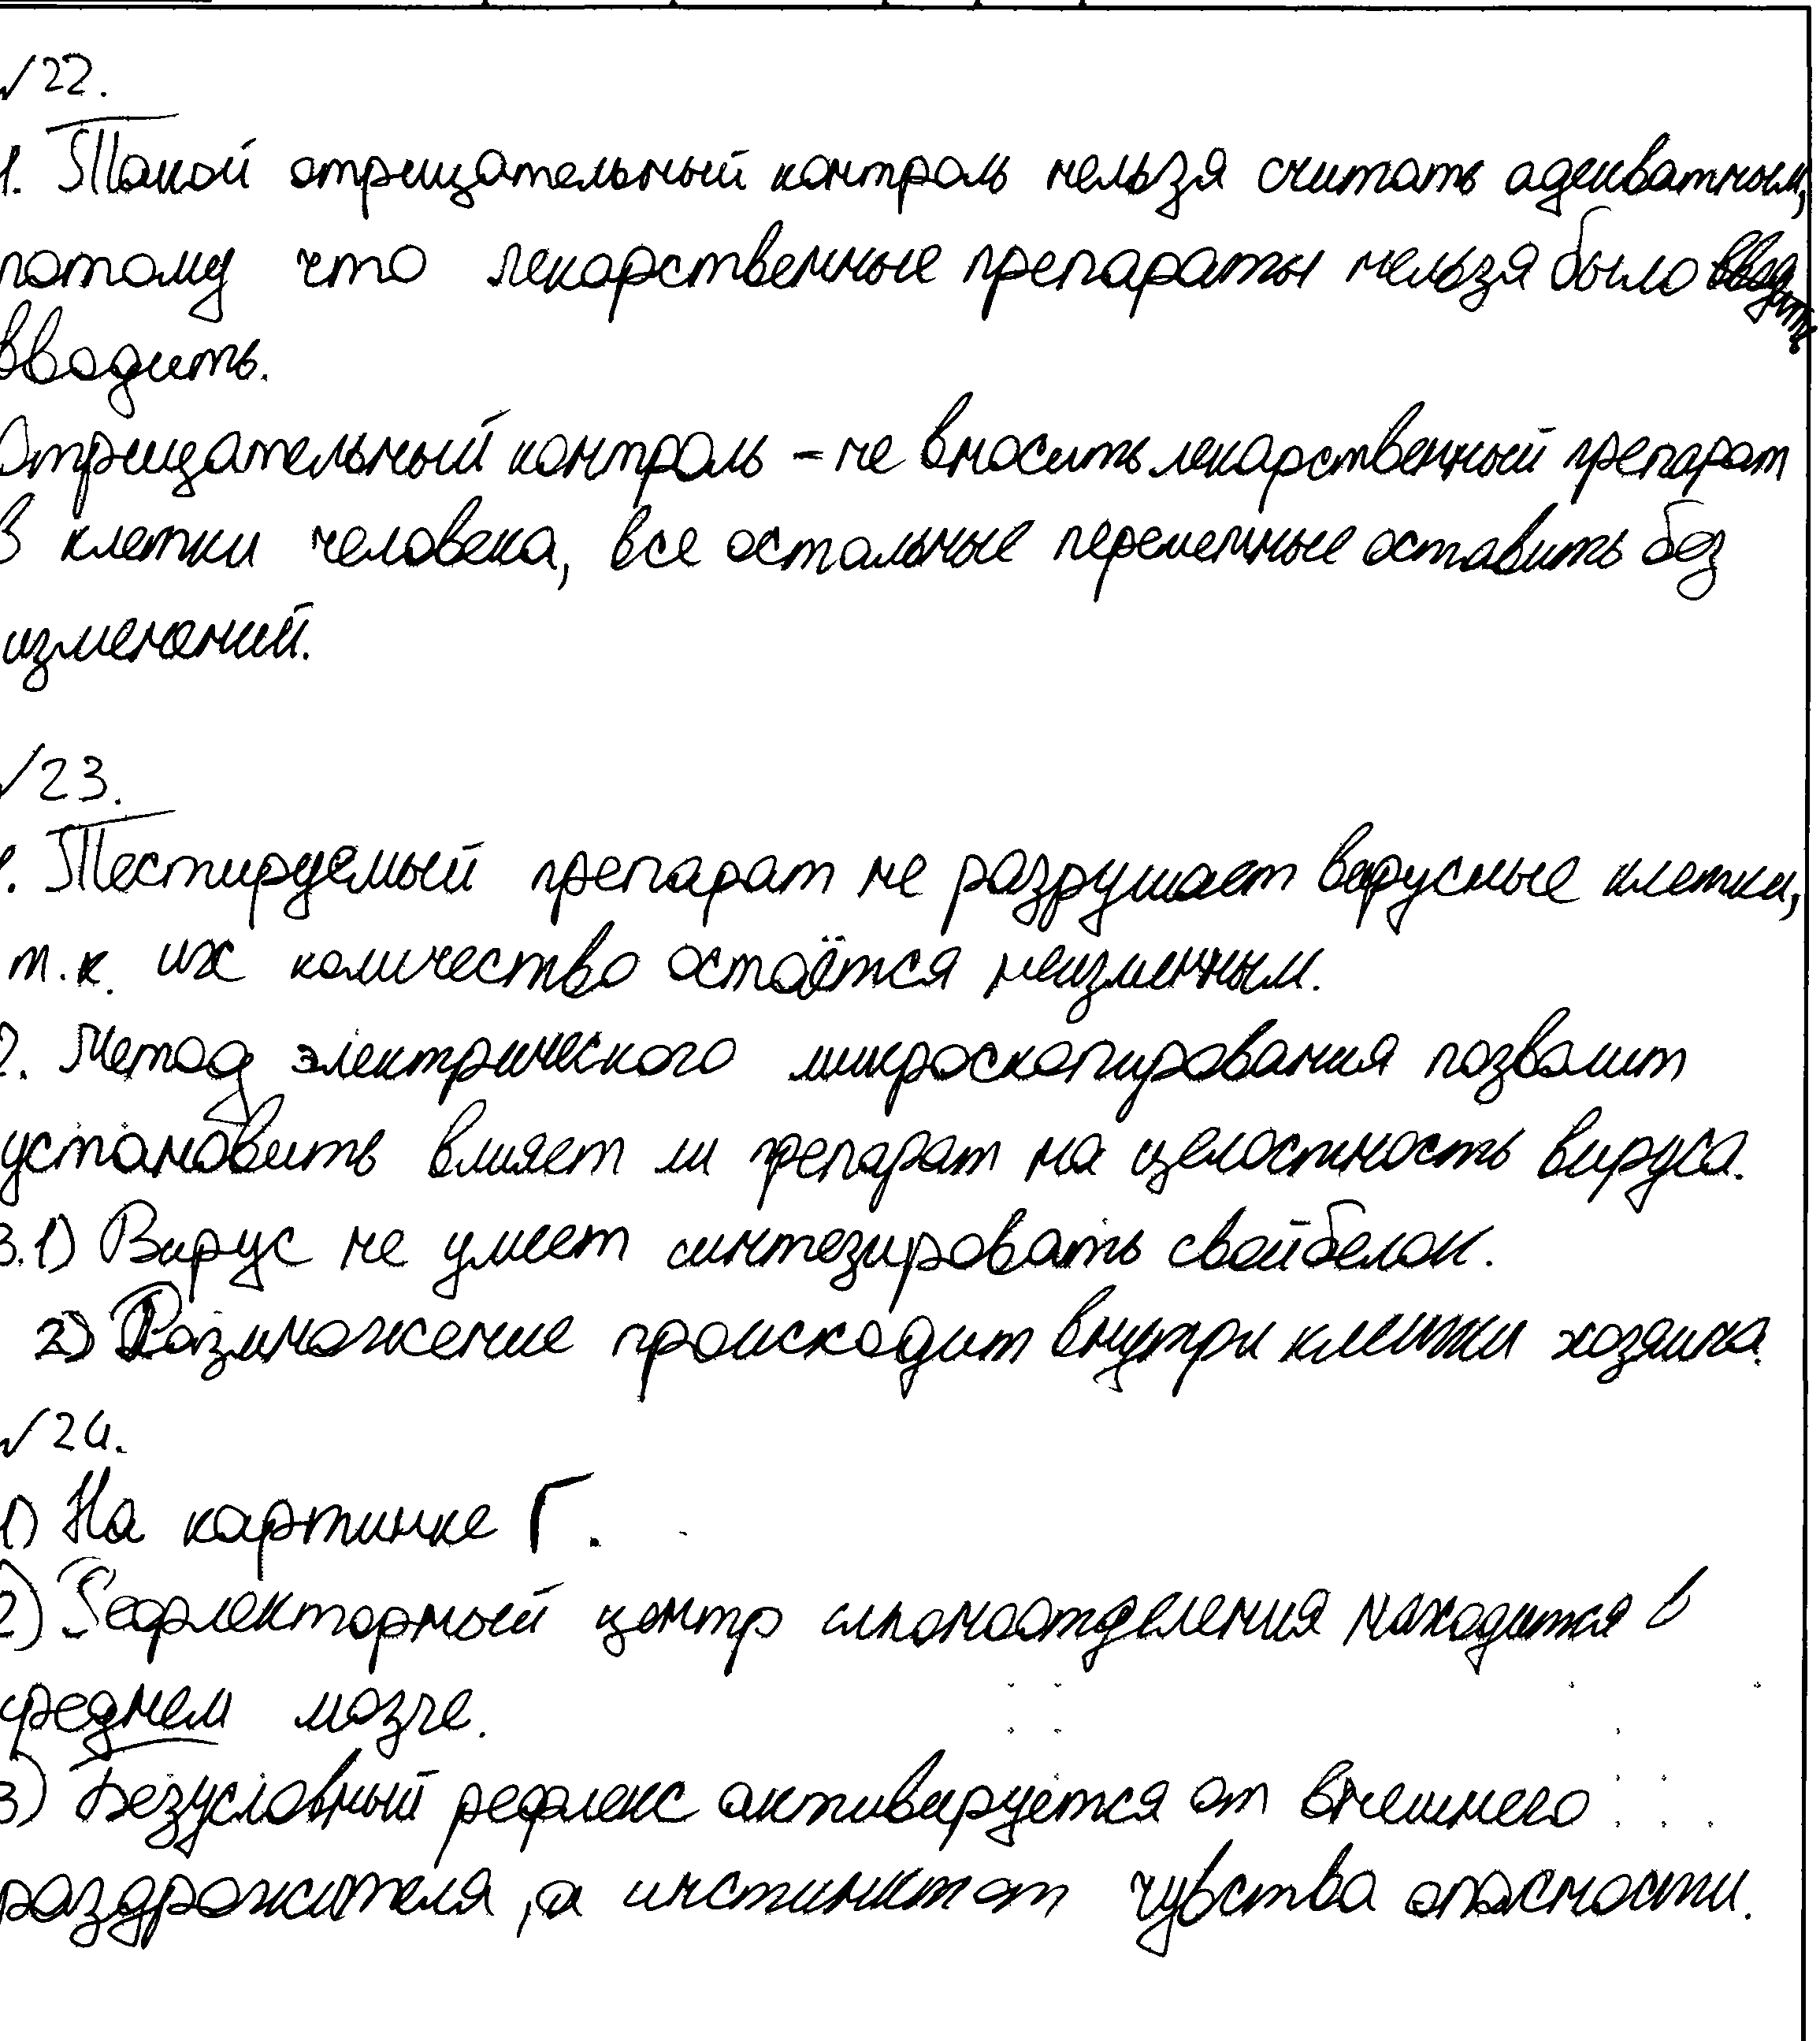 √22.
1. Такой отрицательный контроль нельзя считать адекватным,
потому что лекарственные препараты нельзя было
вводить.
Отрицательный контроль – не вносить лекарственный препарат
в клетки человека, все остальные переменные оставить без
изменений.
√23.
1. Тестируемый препарат не разрушает вирусные клетки,
т.к. их количество остаётся неизменным.
2. Метод электрического микроскопирования позволит
установить влияет ли препарат на целостность вируса.
3. 1) Вирус не умеет синтезировать свой белок.
2) Размножение происходит внутри клетки хозяина.
√24.
1) На картинке Г.
2) Рефлекторный центр слюноотделения находится в
среднем мозге.
3) Безусловный рефлекс активируется от внешнего
раздражителя, а инстинкт от чувства опасности.